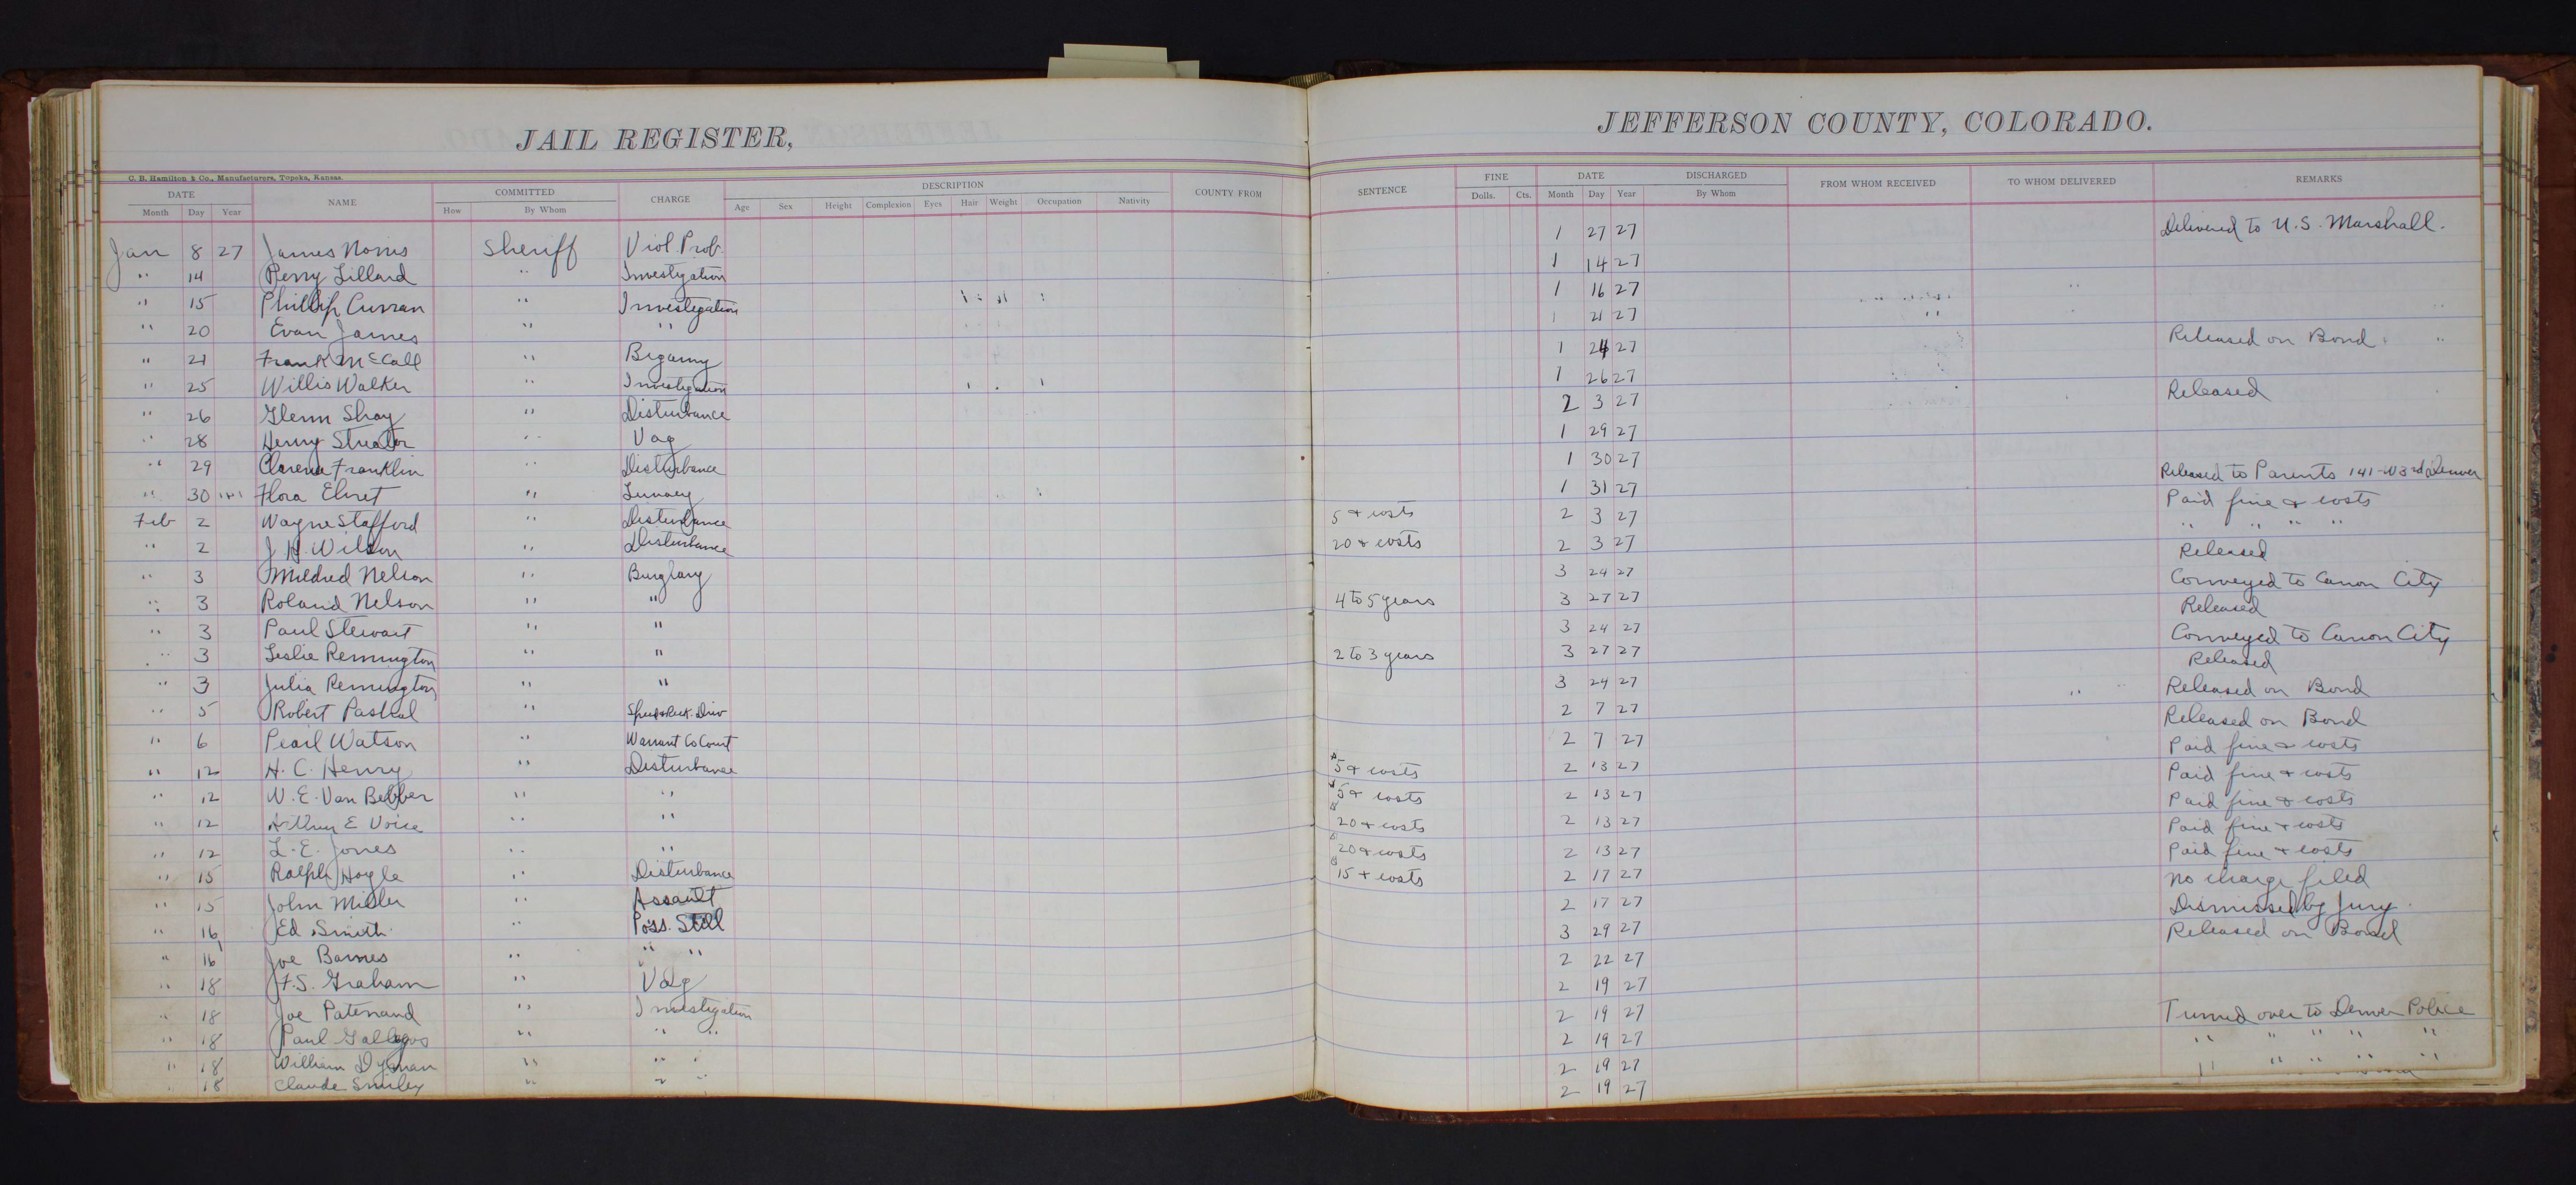 JAIL REGISTER,
JEFFERSON COUNTY, COLORADO.
C. B. Hamilton & Co., Manufacturers, Topeka, Kansas.
DATE NAME COMMITTED CHARGE DESCRIPTION COUNTY FROM SENTENCE FINE DATE DISCHARGED FROM WHOM RECEIVED TO WHOM DELIVERED REMARKS
Month Day Year How By Whom Age Sex Height Complexion Eyes Hair Weight Occupation Nativity Dolls. Cts. Month Day Year By Whom
Jan 8 27 James Norris Sheriff Viol. Prob. 1 27 27 Delivered to U.S. Marshall.
" 14 Perry Lillard " Investigation 1 14 27
" 15 Phillip Curran " Investigation 1 16 27
" 20 Evan James " " 1 21 27
" 21 Frank McCall " Bigamy 1 24 27 Released on Bond
" 25 Willis Walker " Investigation 1 26 27
" 26 Glenn Shay " Disturbance 2 3 27 Released
" 28 Henry Streator " Vag 1 29 27
" 29 Clarence Franklin " Disturbance 1 30 27
" 30 Flora " Lunacy 1 31 27 Released to Parents 141-W 3rd Denver
Feb 2 Wayne Stafford " Disturbance 5 & costs 2 3 27 Paid fine & costs
" 2 J. H. Wilson " Disturbance 20 & costs 2 3 27 " " " "
" 3 Mildred Nelson " Burglary 3 24 27 Released
" 3 Roland Nelson " " 4 to 5 years 3 27 27 Conveyed to Canon City
" 3 Paul Stewart " " 3 24 27 Released
" 3 Leslie Remington " " 2 to 3 years 3 27 27 Conveyed to Canon City
" 3 Julia Remington " " 3 24 27 Released
" 5 Robert Paskal " Speed & Reck. Driv 2 7 27 Released on Bond
" 6 Pearl Watson " Warrant Co Court 2 7 27 Released on Bond
" 12 H. C. Henry " Disturbance $5 & costs 2 13 27 Paid fine & costs
" 12 W. E. Van Bebber " " $5 & costs 2 13 27 Paid fine & costs
" 12 Arthur E Voice " " $20 & costs 2 13 27 Paid fine & costs
" 12 L. E. Jones " " $20 & costs 2 13 27 Paid fine & costs
" 15 Ralph Hoyle " Disturbance $15 & costs 2 17 27 Paid fine & costs
" 15 John Miller " Assault 2 17 27 No charge filed
" 16 Ed Smith " Poss. Still 3 29 27 Dismissed by Jury.
" 16 Joe Barnes " " " 2 22 27 Released on Bond
" 18 F. S. Graham " Vag 2 19 27
" 18 Joe Patenaud " Investigation 2 19 27 Turned over to Denver Police
" 18 Paul Gallegos " " " 2 19 27 " " " " "
" 18 William " " " 2 19 27 " " " " "
" 18 Claude Smiley " " " 2 19 27